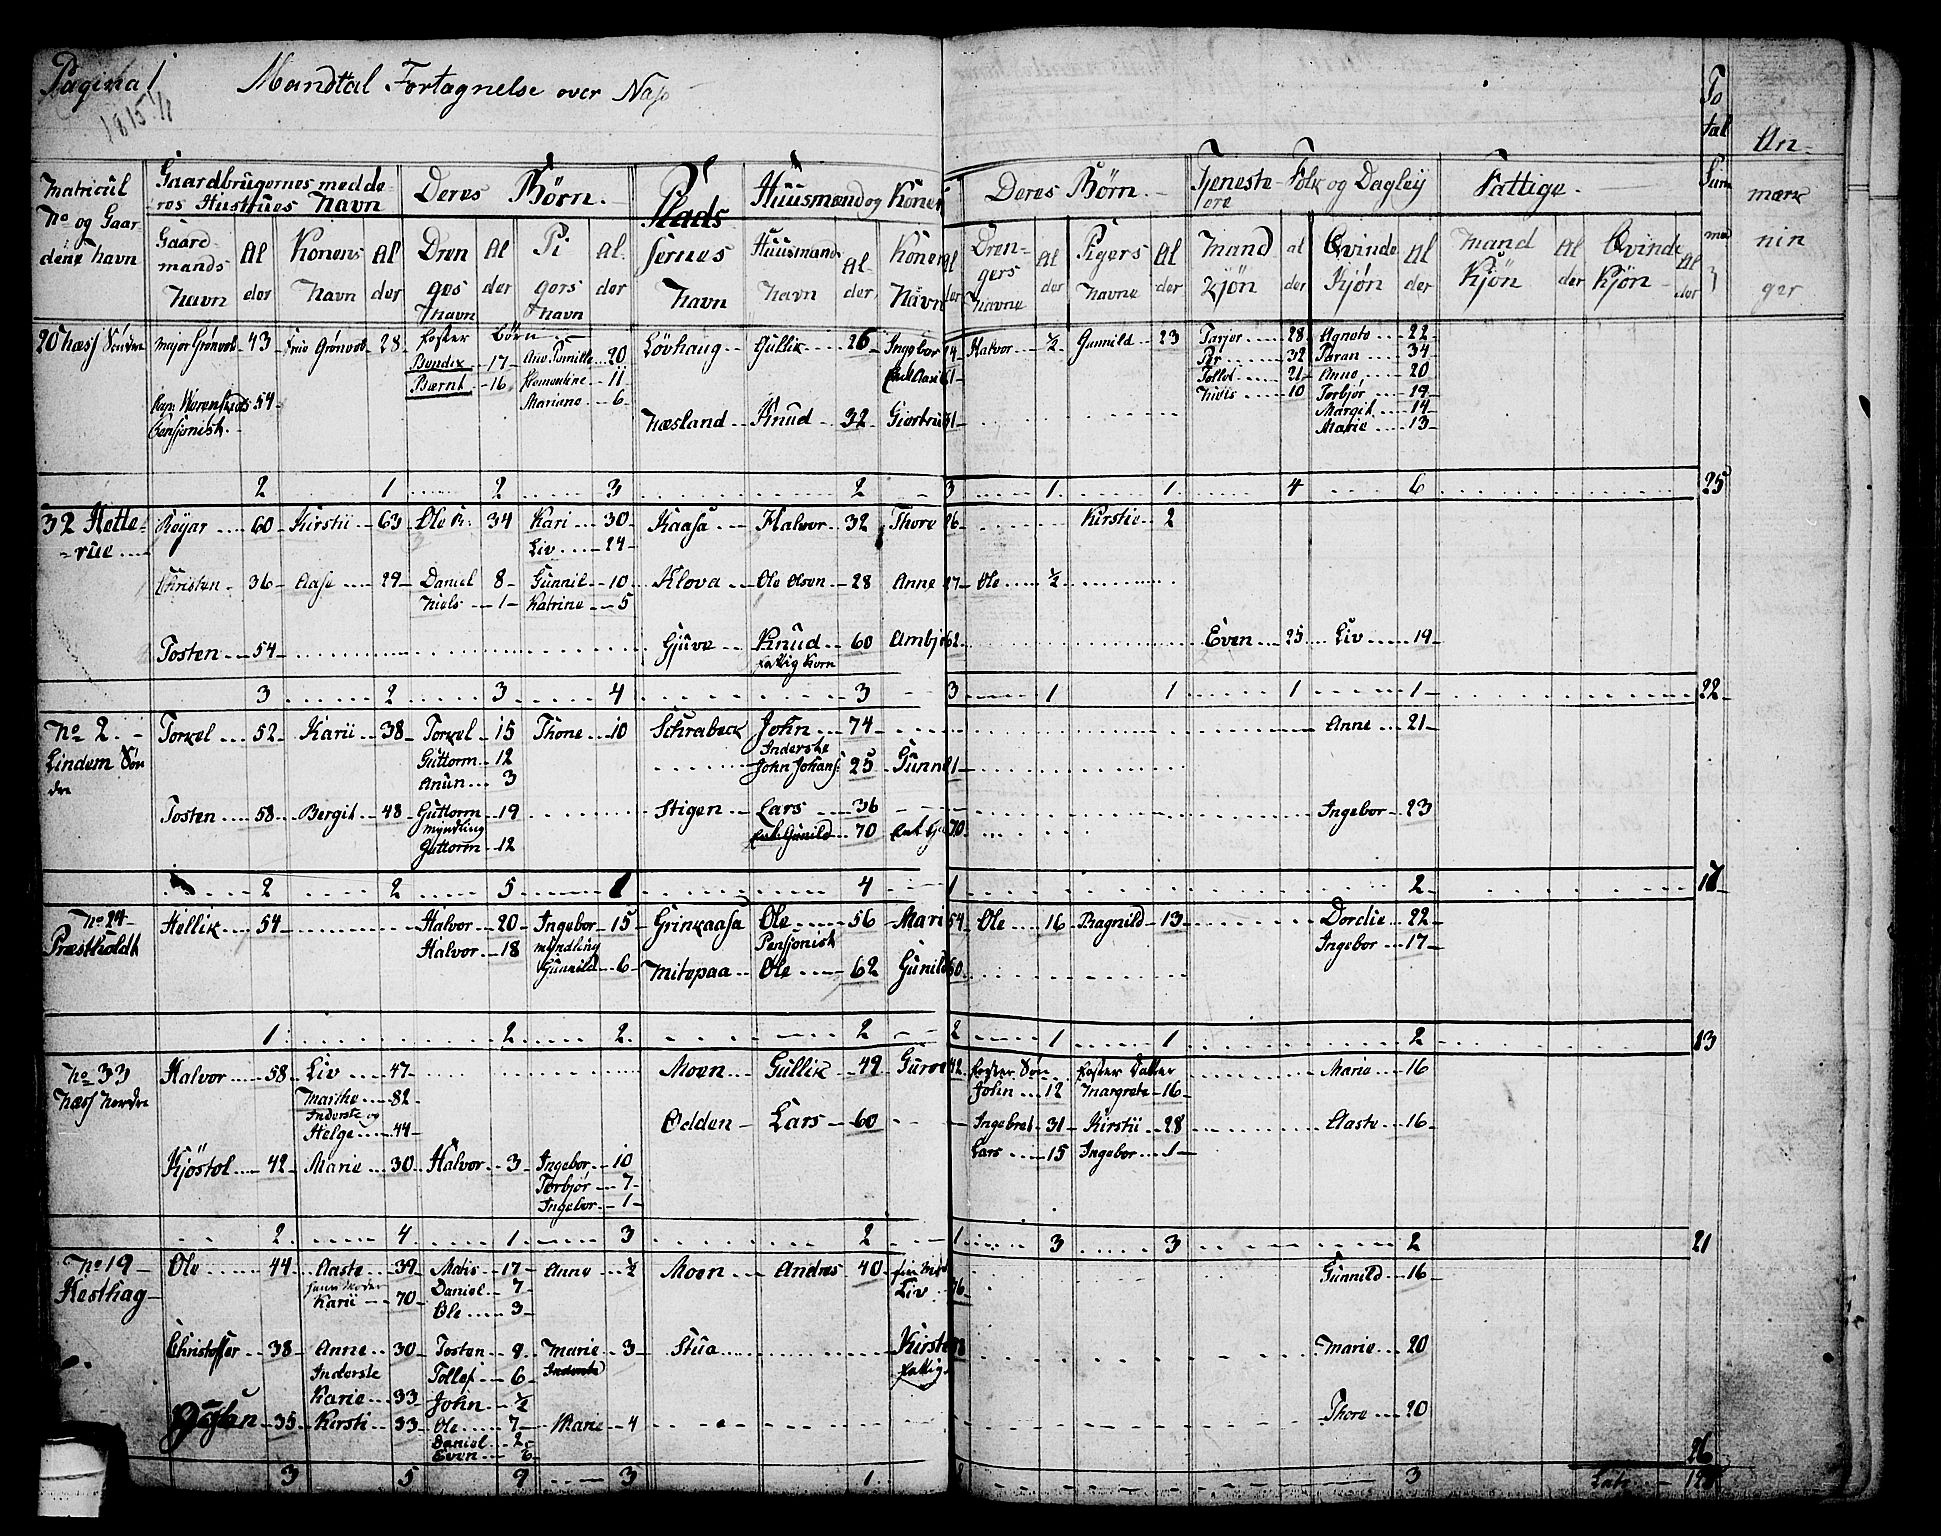 Pagina 1
1815
Mandtal Fortagnelse over
Matricul No og Gaardene Navn
Gaardbrugernes med deres Hustrues Navn
Deres Børn.
Pladsernes Navn
Huusmænd og Koner
Deres Børn.
Tjeneste Folk og Dagley
Fattige.
Total Sum
Anmærkninger
Gaardmands Navn Alder Konens Navn Alder Drenges Navn Alder Pigers Navn Alder Huusmands Navn Alder Koner Navn Alder Drengers Navne Alder Pigers Navne Alder Mand Kjön Alder Qvinde Kjön Alder Mand Kjön Alder Qvinde Kjön Alder
20 Næss Søndre major Grønvol 43 Grønvol 28 Foster Børn Løvhaug Gullik 26 Ingebor Halvor ½ Gunnild 23 Tarjer 28 Agnete 22
Bendix 17 20 Per 32 Paran 34
Bærnt 16 11 Tollef 21 Anne 20
Mariane 6 Nils 10 Torbjør 19
54 Næsland Knud 32 Margit 14
Marie 13
2 1 2 3 2 3 1 1 4 6 25
32 Hotterue Rojar 60 Kirstii 63 Ole R. 34 Kari 30 Kaasa Halvor 32 Thore 26 Kirstie 2
Liv 24
Christen 36 Aase 29 Daniel 8 Gunnil 10 Klova Ole Olsen 28 Anne 27 Ole ½
Niels 1 Katrine 5
Tosten 54 Gjuve Knud 60 Ambjø 62 Even 25 Liv 19
3 2 3 4 3 3 1 1 1 1 22
No 2 Lindem Søndre Torkel 52 Karii 38 Torkel 15 Thone 10 Schrabeck John 74 Anne 21
Guttorm 12 Inderste
Anun 3 John Johans: 25 Gunn
Tosten 58 Bergit 48 Guttorm 19 Stigen Lars 36 Ingebor 23
Myndling 70 70
Guttorm 12
2 2 5 1 4 1 2 17
No 24 Præstholdt Hellik 54 Halvor 20 Ingebor 15 Grinkaasa Ole 56 Mari 54 Ole 16 Ragnild 13 Dordie 22
Halvor 18 Myndling Pensjonist Ingebor 17
Gunnild 6 Mitopaa Ole 62 Gunild 60
1 2 2 2 2 1 1 2 13
No 33 Næss Nordre Halvor 58 Liv 47 Moen Gullik 49 Guroe 42 Foster Søn Foster Datter Marie 16
Marthe 82 John 12 Margrete 16
Inderste og
Helge 44 Odden Lars 60 Ingebret 31 Kirstii 28 Aaste 16
Lars 15 Ingebor 1
Kjöstol 42 Marie 30 Halvor 3 Ingebor 10
Torbjør 7
Ingebor 1
2 4 1 3 2 1 3 3 2 21
No 19 Hesthag Ole 44 Aaste 39 Matis 17 Anne ½ Moen Andres 40 Gunnild 16
Karii 70 Daniel 7 Liv 76
Ole 3
Christoffer 38 Anne 30 Tosten 9 Marie 3 Stua Kirste Marie 20
Inderste Tollef 6 Inderste Fattig
Karie 33 John ½
35 Kersti 33 Ole 7 Marie 4 Thore 20
Daniel 2
Even ½
3 5 9 3 1 3 26